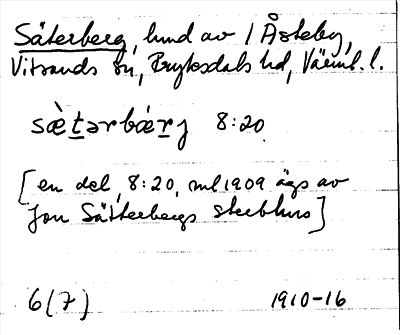 Säterberg, hmd av 1 Åsteby,
Vitsands sn, Fryksdals hd, Värml. l.
sæ̀tərbæ̀rj 8:20
[en del, 8:20, ml 1909 ägs av
Jon Sätterbergs sterbhus]
6(7) 1910-16